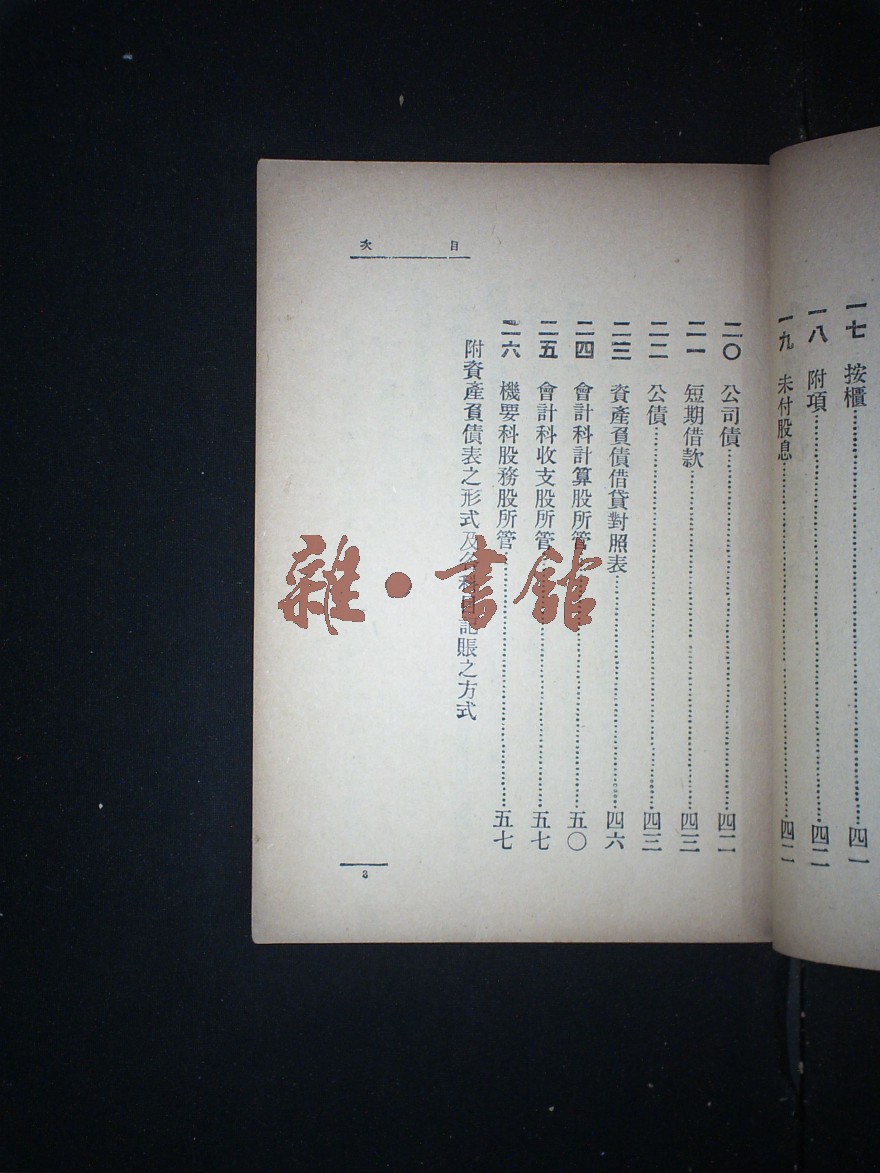 一七 按櫃……四一
一八 附項……四二
一九 未付股息……四二
目次
二〇 公司債……四二
二一 短期借款……四三
二二 公債……四三
二三 資產負債借貸對照表……四六
二四 會計科計算股所管……五〇
二五 會計科收支股所管……五七
二六 機要科股務股所管……五七
附資產負債表之形式及各科目記賬之方式
3
雜·書館